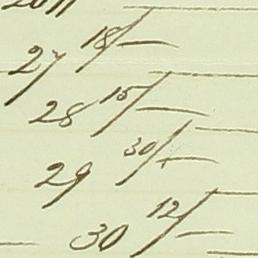 27 18/-
28 15/-
29 30/-
30 12/-